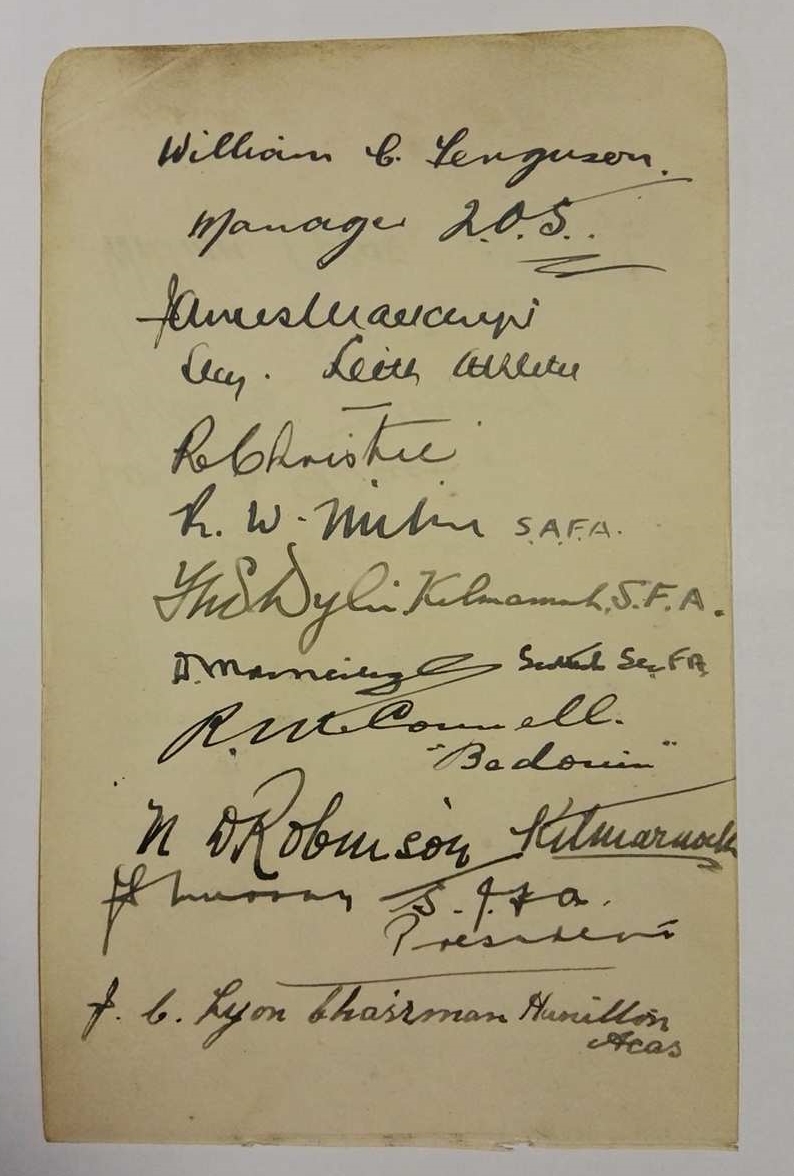 William C. Ferguson.
Manager Q.O.S.
James
Secy. Leith Athletic
R Christie
R. W. S.A.F.A.
Kilmarnock, S.F.A.
D. Scottish Sec. F.A.
R. McConnell.
"Bedouin"
N D Robinson Kilmarnock
J Murray S.J.F.A.
President
J. C. Lyon Chairman Hamilton
Acas